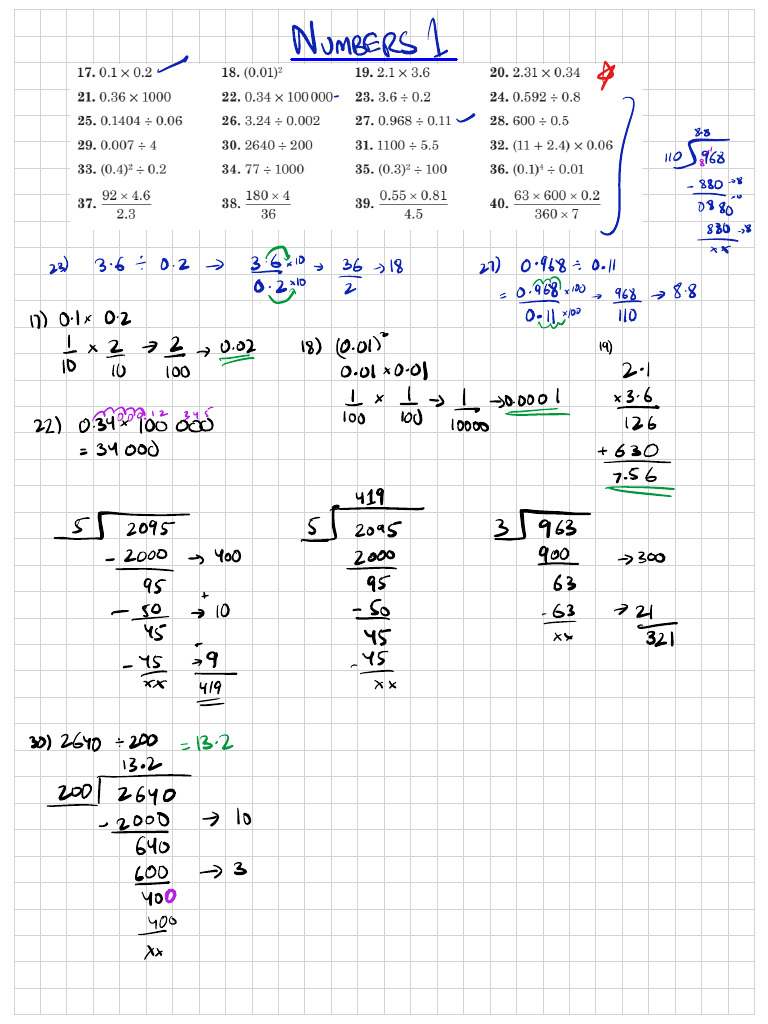 NUMBERS 1
17. 0.1 × 0.2 18. (0.01)² 19. 2.1 × 3.6 20. 2.31 × 0.34
21. 0.36 × 1000 22. 0.34 × 100 000 23. 3.6 ÷ 0.2 24. 0.592 ÷ 0.8
25. 0.1404 ÷ 0.06 26. 3.24 ÷ 0.002 27. 0.968 ÷ 0.11 28. 600 ÷ 0.5
29. 0.007 ÷ 4 30. 2640 ÷ 200 31. 1100 ÷ 5.5 32. (11 + 2.4) × 0.06
33. (0.4)² ÷ 0.2 34. 77 ÷ 1000 35. (0.3)² ÷ 100 36. (0.1)⁴ ÷ 0.01
37. 92 × 4.6 / 2.3 38. 180 × 4 / 36 39. 0.55 × 0.81 / 4.5 40. 63 × 600 × 0.2 / 360 × 7
8.8
110 968
- 880 → 8
0880
880 → 8
xx
23) 3.6 ÷ 0.2 → 3.6 ×10 / 0.2 ×10 → 36 / 2 → 18
27) 0.968 ÷ 0.11
= 0.968 ×100 / 0.11 ×100 → 968 / 110 → 8.8
17) 0.1 × 0.2
1/10 × 2/10 → 2/100 → 0.02
18) (0.01)²
0.01 × 0.01
1/100 × 1/100 → 1/10000 → 0.0001
19)
2.1
×3.6
126
+ 630
7.56
22) 0.34 × 100 000
= 34 000
5 2095
- 2000 → 400
95 +
- 50 → 10
45 -
- 45 → 9
xx 419
419
5 2095
2000
95
- 50
45
- 45
xx
3 963
900 → 300
63
- 63 → 21
xx 321
30) 2640 ÷ 200 = 13.2
13.2
200 2640
- 2000 → 10
640
600 → 3
400
400
xx